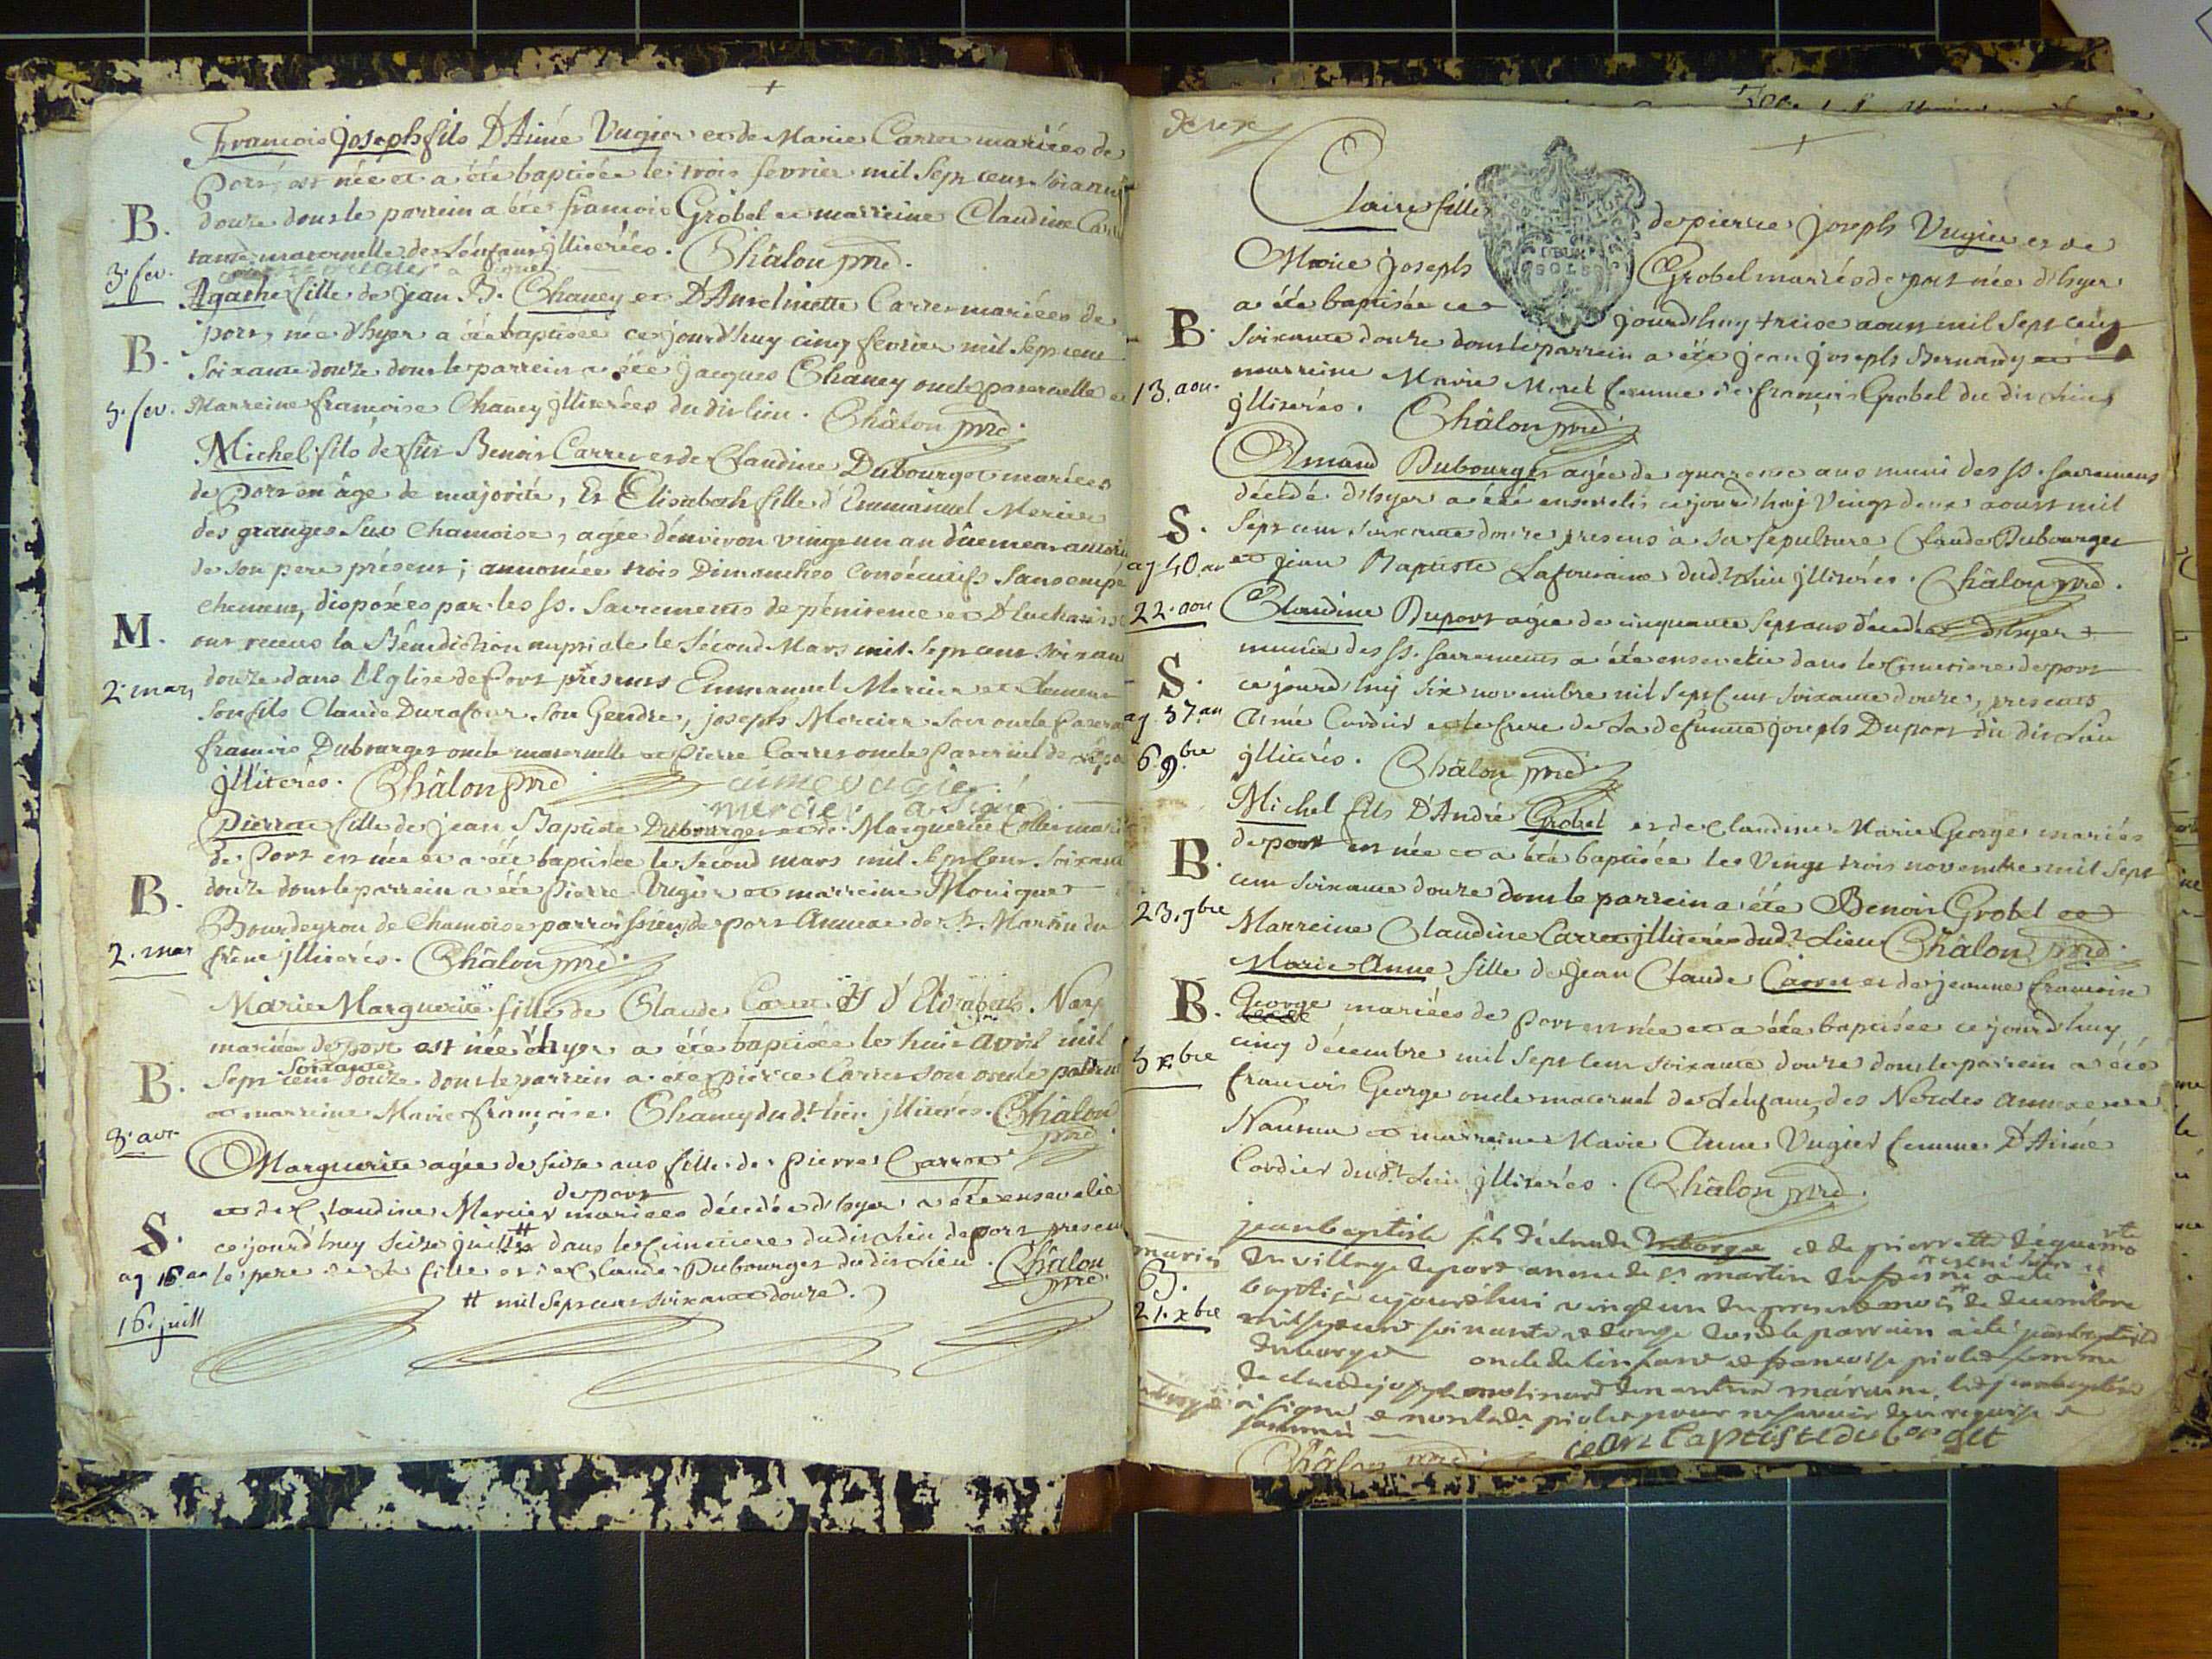 François Joseph fils D'Aimé Vugier et de Marie Carret mariées de
Port, est née et a été baptisée le trois fevrier mil sept cent soixante
B. douze dont le parrein a été françois Grobel et marreine Claudine
tante maternelle de l'enfant jlliterées. Châlon prre.
3. fev.
Agathe fille de Jean B. Chaney et D'Anselmette Carret mariées de
port, née d'hyer a été baptisée ce jourd'huy cinq fevrier mil sept cent
B. soixante douze dont le parrein a été Jacques Chaney oncle paternelle et
5. fev. Marreine françoise Chaney jlliterées du dit lieu. Châlon prre.
Michel fils de fût Benoit Carret et de Claudine Dubourget mariées
de Port en âge de majorité, Et Elisabeth fille d'Emmanuel Mercier
des granges sur Chamoise, agée d'environ vingt un an dûement
de son pere présent; annoncée trois Dimanches consécutifs sans empê
chement, disposées par les ss. Sacrements de pénitence et D'Eucharist
M. ont receus la Bénédiction nuptiale le second Mars mil sept cent soixan
2. mars douze dans l'Eglise de Port présents Emmanuel Mercier et Clement
son fils Claude Durafour son Gendre, joseph Mercier son oncle
françois Dubourget oncle maternelle et Pierre Carret oncle Paternel de
jlliterés. Châlon prre
mercier a signé
Pierrette fille de Jean Baptiste Dubourget et de Marguerite
de Port est née et a été baptisée le second mars mil sept cent soixante
B. douze dont le parrein a été Pierre Vugier et marreine Monique
Bourdeyron de Chamoise parroissiens de port Annexe de St. Martin du
2. mar frêne jlliterés. Châlon prre.
Marie Marguerite fille de Claude Carret et d'Elizabeth
mariées de port est née d'hyer a été baptisée le huit avril mil
soixante
B. sept cent douze dont le parrein a été pierre Carret son oncle paternel
et marreine Marie françoise Chaney du dt. lieu jlliterés. Châlon
prre.
8. avr.
Marguerite agée de seize ans fille de pierre Carret
de port
et de Claudine Mercier mariées décédée d'hyer a été ensevelie
S. ce jourd'huy seize juillet # dans le Cimetiere du dit lieu de port present
ag 16 an le pere de la fille et Claude Dubourget du dit lieu. Châlon
prre.
# mil sept cent soixante douze.
16. juill
deux
Claire fille de pierre Joseph Vugier et de
Marie Joseph Grobel mariés de port née d'hyer
a été baptisée ce jourd'huy treise aoust mil sept cent
B. soixante douze dont le parrein a été Jean Joseph Bernardy et
13. aou. marreine Marie Moret femme de françois Grobel du dit lieu
jlliterés. Châlon prre.
Armand Dubourget agée de quarente ans muni des ss. sacremens
décédé d'hyer a été ensevelis ce jourd'huj vingt deux aoust mil
S. sept cent soixante douze presens à sa sepulture Claude Dubourget
ag 40. an et Jean Baptiste Lafontaine dudt. Lieu jlliterés. Châlon prre.
22. aou Claudine Duport agée de cinquante sept ans décedée d'hyer
munie des ss. sacrements a été ensevelie dans le Cimetiere de port
S. ce jourd'huj six novembre mil sept cent soixante douze, presents
ag. 57. an Aimé Cordier et le frere de La defunte joseph Duport du dit Lieu
6 9bre jlliterés. Châlon prre.
Michel fils D'André Grobel et de Claudine Marie George mariés
B. de port est née et a été baptisée le vingt trois novembre mil sept
cent soixante douze dont le parrein a été Benoit Grobel et
23. 9bre Marreine Claudine Carret jlliterés dudt. Lieu Châlon prre.
Marie Anne fille de Jean Claude Carret et de jeanne françoise
B. George mariées de port est née et a été baptisée ce jourd'huy
5 xbre cinq décembre mil sept cent soixante douze dont le parrein a été
françois George oncle maternel de L'enfant, des Nerdes annexe de
Nantua et marreine Marie Anne Vugier femme D'Aimé
Cordier dudt. Lieu jlliterés. Châlon prre.
jean baptiste fils de claude duborge et de pierrette
du village de port annexe de st martin du
B. baptisé ce jourd'hui vingt un du present mois de decembre
21. xbre mil sept cent soixante et douze dont le parrain a été
duborget oncle de l'enfant et francoise piolet femme
de claude joseph molinard
a signé et non la de piolet pour ne savoir de ce requise et
sommée
Châlon prre. jean baptiste duborget